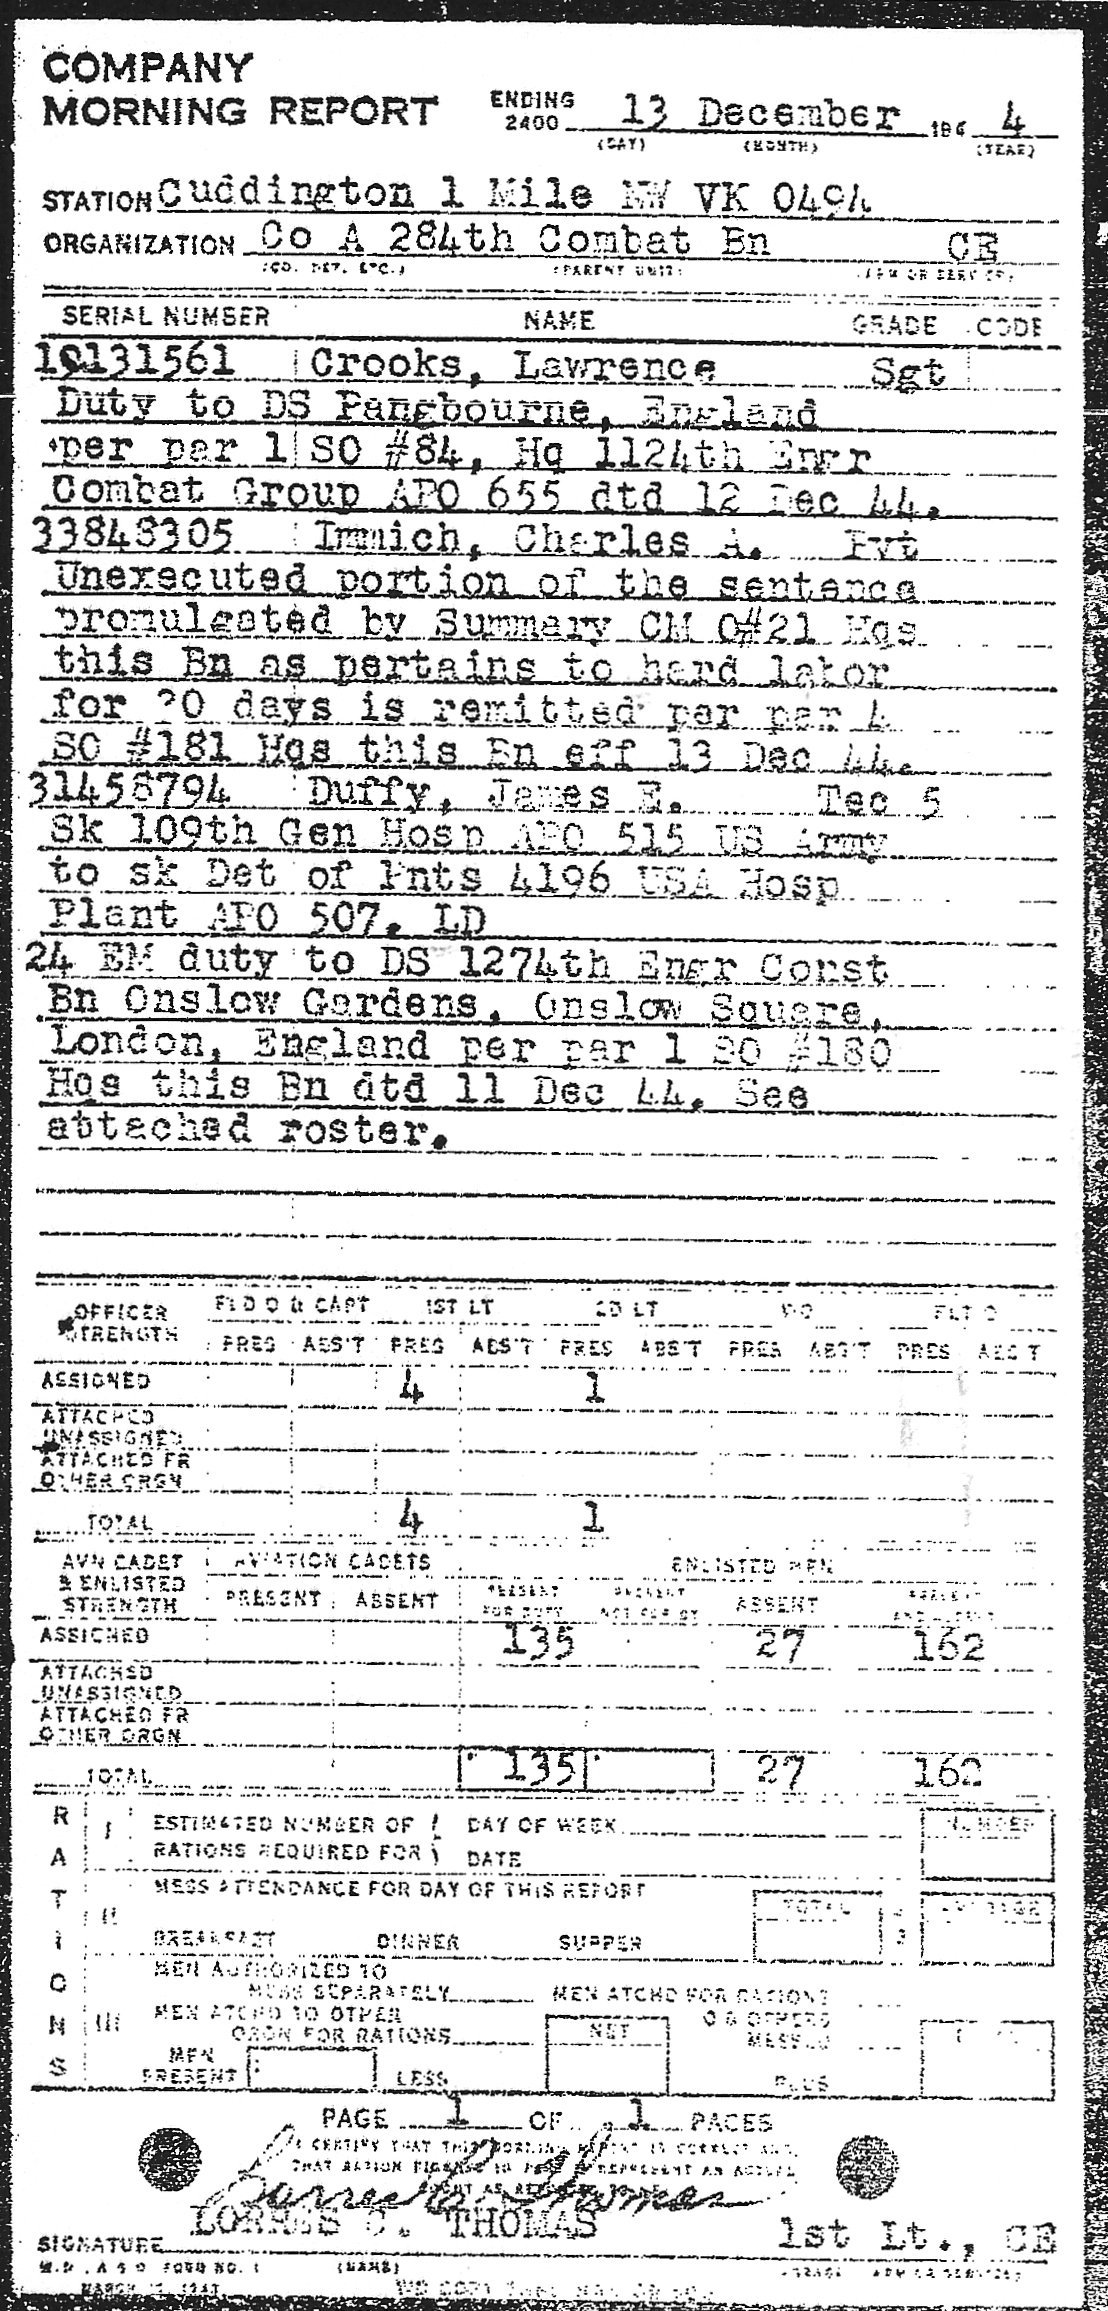 COMPANY
MORNING REPORT ENDING 2400 13 December 194 4
(DAY) (MONTH) (YEAR)
STATION Cuddington 1 Mile NW VK 0494
ORGANIZATION Co A 284th Combat Bn CE
(CO. DET. ETC.) (PARENT UNIT) (ARM OR SERVICE)
SERIAL NUMBER NAME GRADE CODE
Crooks, Lawrence Sgt
Duty to DS Pangbourne, England
per par 1 SO #84, Hq 1124th Engr
Combat Group APO 655 dtd 12 Dec 44.
Immich, Charles A. Pvt
Unexecuted portion of the sentence
promulgated by Summary CM O#21 Hqs
this Bn as pertains to hard labor
for days is remitted per par 4
SO #181 Hqs this Bn eff 13 Dec 44.
Duffy, James E. Tec 5
Sk 109th Gen Hosp APO 515 US Army
to sk Det of Pnts 4196 USA Hosp
Plant APO 507. LD
24 EM duty to DS 1274th Engr Const
Bn Onslow Gardens, Onslow Square,
London, England per par 1 SO #180
Hqs this Bn dtd 11 Dec 44. See
attached roster.
OFFICER STRENGTH FLD O & CAPT 1ST LT 2D LT WO FLT O
PRES ABS'T PRES ABS'T PRES ABS'T PRES ABS'T PRES ABS'T
ASSIGNED 4 1
ATTACHED UNASSIGNED
ATTACHED FR OTHER ORGN
TOTAL 4 1
AVN CADET & ENLISTED STRENGTH AVIATION CADETS ENLISTED MEN
PRESENT ABSENT PRESENT FOR DUTY PRESENT NOT FOR DY ABSENT PRESENT AND ABSENT
ASSIGNED 135 27 162
ATTACHED UNASSIGNED
ATTACHED FR OTHER ORGN
TOTAL 135 27 162
RATIONS
I ESTIMATED NUMBER OF RATIONS REQUIRED FOR DAY OF WEEK DATE NUMBER
II MESS ATTENDANCE FOR DAY OF THIS REPORT TOTAL AVERAGE
BREAKFAST DINNER SUPPER
III MEN AUTHORIZED TO MESS SEPARATELY MEN ATCHD FOR RATIONS
MEN ATCHD TO OTHER ORGN FOR RATIONS NET O & OTHERS MESSED
MEN PRESENT LESS PLUS
PAGE 1 OF 1 PAGES
I CERTIFY THAT THIS MORNING REPORT IS CORRECT AND
LORRIS C. THOMAS 1st Lt., CE
SIGNATURE
W.D., A G O FORM NO. 1 (NAME) (GRADE) (ARM OR SERVICE)